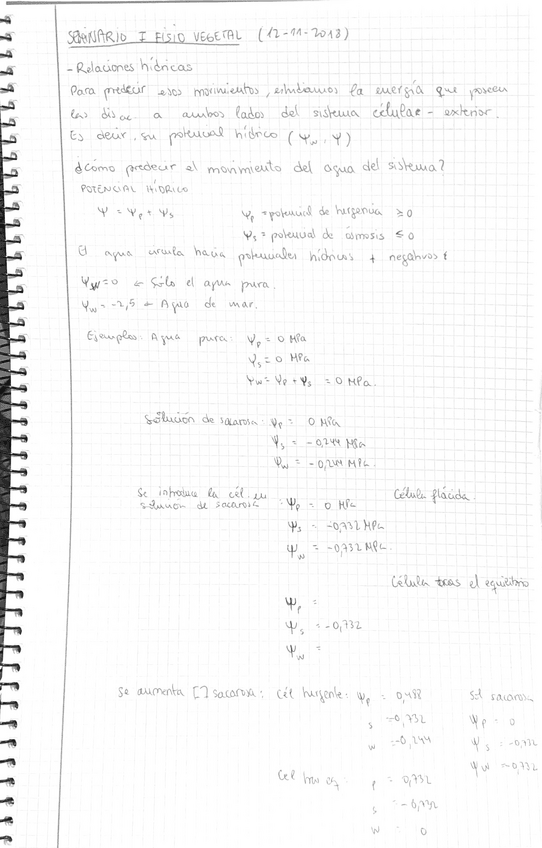 SEMINARIO I FISIO VEGETAL (12-11-2018)
- Relaciones hídricas
Para predecir esos movimientos, estudiamos la energía que poseen
las disoc a ambos lados del sistema célular - exterior.
Es decir, su potencial hídrico (Ψw, Ψ)
¿Cómo predecir el movimiento del agua del sistema?
POTENCIAL HÍDRICO
Ψ = Ψp + Ψs Ψp = potencial de turgencia ≥ 0
Ψs = potencial de ósmosis ≤ 0
El agua circula hacia potenciales hídricos + negativos
Ψw = 0 ← Sólo el agua pura.
Ψw = -2,5 ← Agua de mar.
Ejemplos: Agua pura: Ψp = 0 MPa
Ψs = 0 MPa
Ψw = Ψp + Ψs = 0 MPa.
Solución de sacarosa: Ψp = 0 MPa
Ψs = -0,244 MPa
Ψw = -0,244 MPa.
Se introduce la cél. en solución de sacarosa : Ψp = 0 MPa Célula flácida
Ψs = -0,732 MPa
Ψw = -0,732 MPa.
Célula tras el equilibrio
Ψp =
Ψs = -0,732
Ψw =
Se aumenta [ ] sacarosa: Cél turgente: Ψp = 0,488 Sol sacarosa
s = -0,732 Ψp = 0
w = -0,244 Ψs = -0,732
Ψw = -0,732
Cél tras eq : p = 0,732
s = -0,732
w = 0